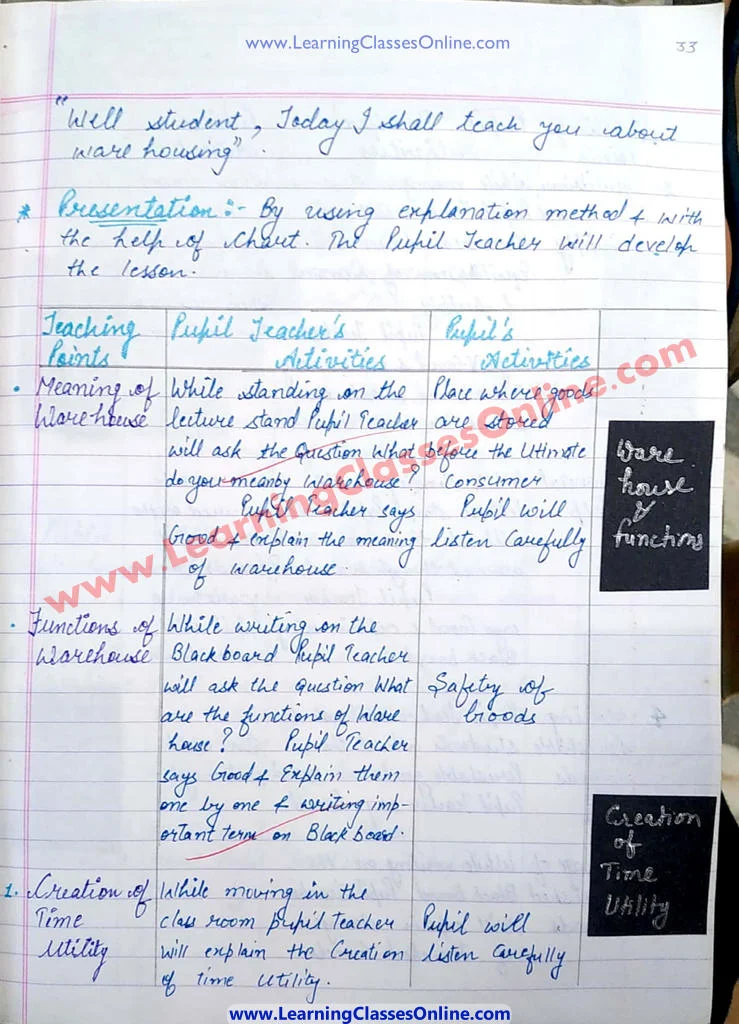 www.LearningClassesOnline.com
33
"Well student, Today I shall teach you about
ware housing".
* Presentation:- By using explanation method & with
the help of Chart. The Pupil Teacher will develop
the lesson.
Teaching
Points
Pupil Teacher's
Activities
Pupil's
Activities
• Meaning of
Warehouse
While standing on the
lecture stand Pupil Teacher
will ask the Question What
do you meanby Warehouse?
Pupil Teacher says
Good & explain the meaning
of warehouse.
Place where goods
are stored
before the Ultimate
consumer
Pupil will
listen Carefully
Ware
house
&
functions
• Functions of
Warehouse
While writing on the
Blackboard Pupil Teacher
will ask the Question What
are the functions of Ware
house? Pupil Teacher
says Good & Explain them
one by one & writing imp-
ortant term on Black board.
Safety of
Goods
Creation
of
Time
Utility
1. Creation of
Time
Utility
While moving in the
class room pupil teacher
will explain the Creation
of time utility.
Pupil will
listen carefully
www.LearningClassesOnline.com
www.LearningClassesOnline.com